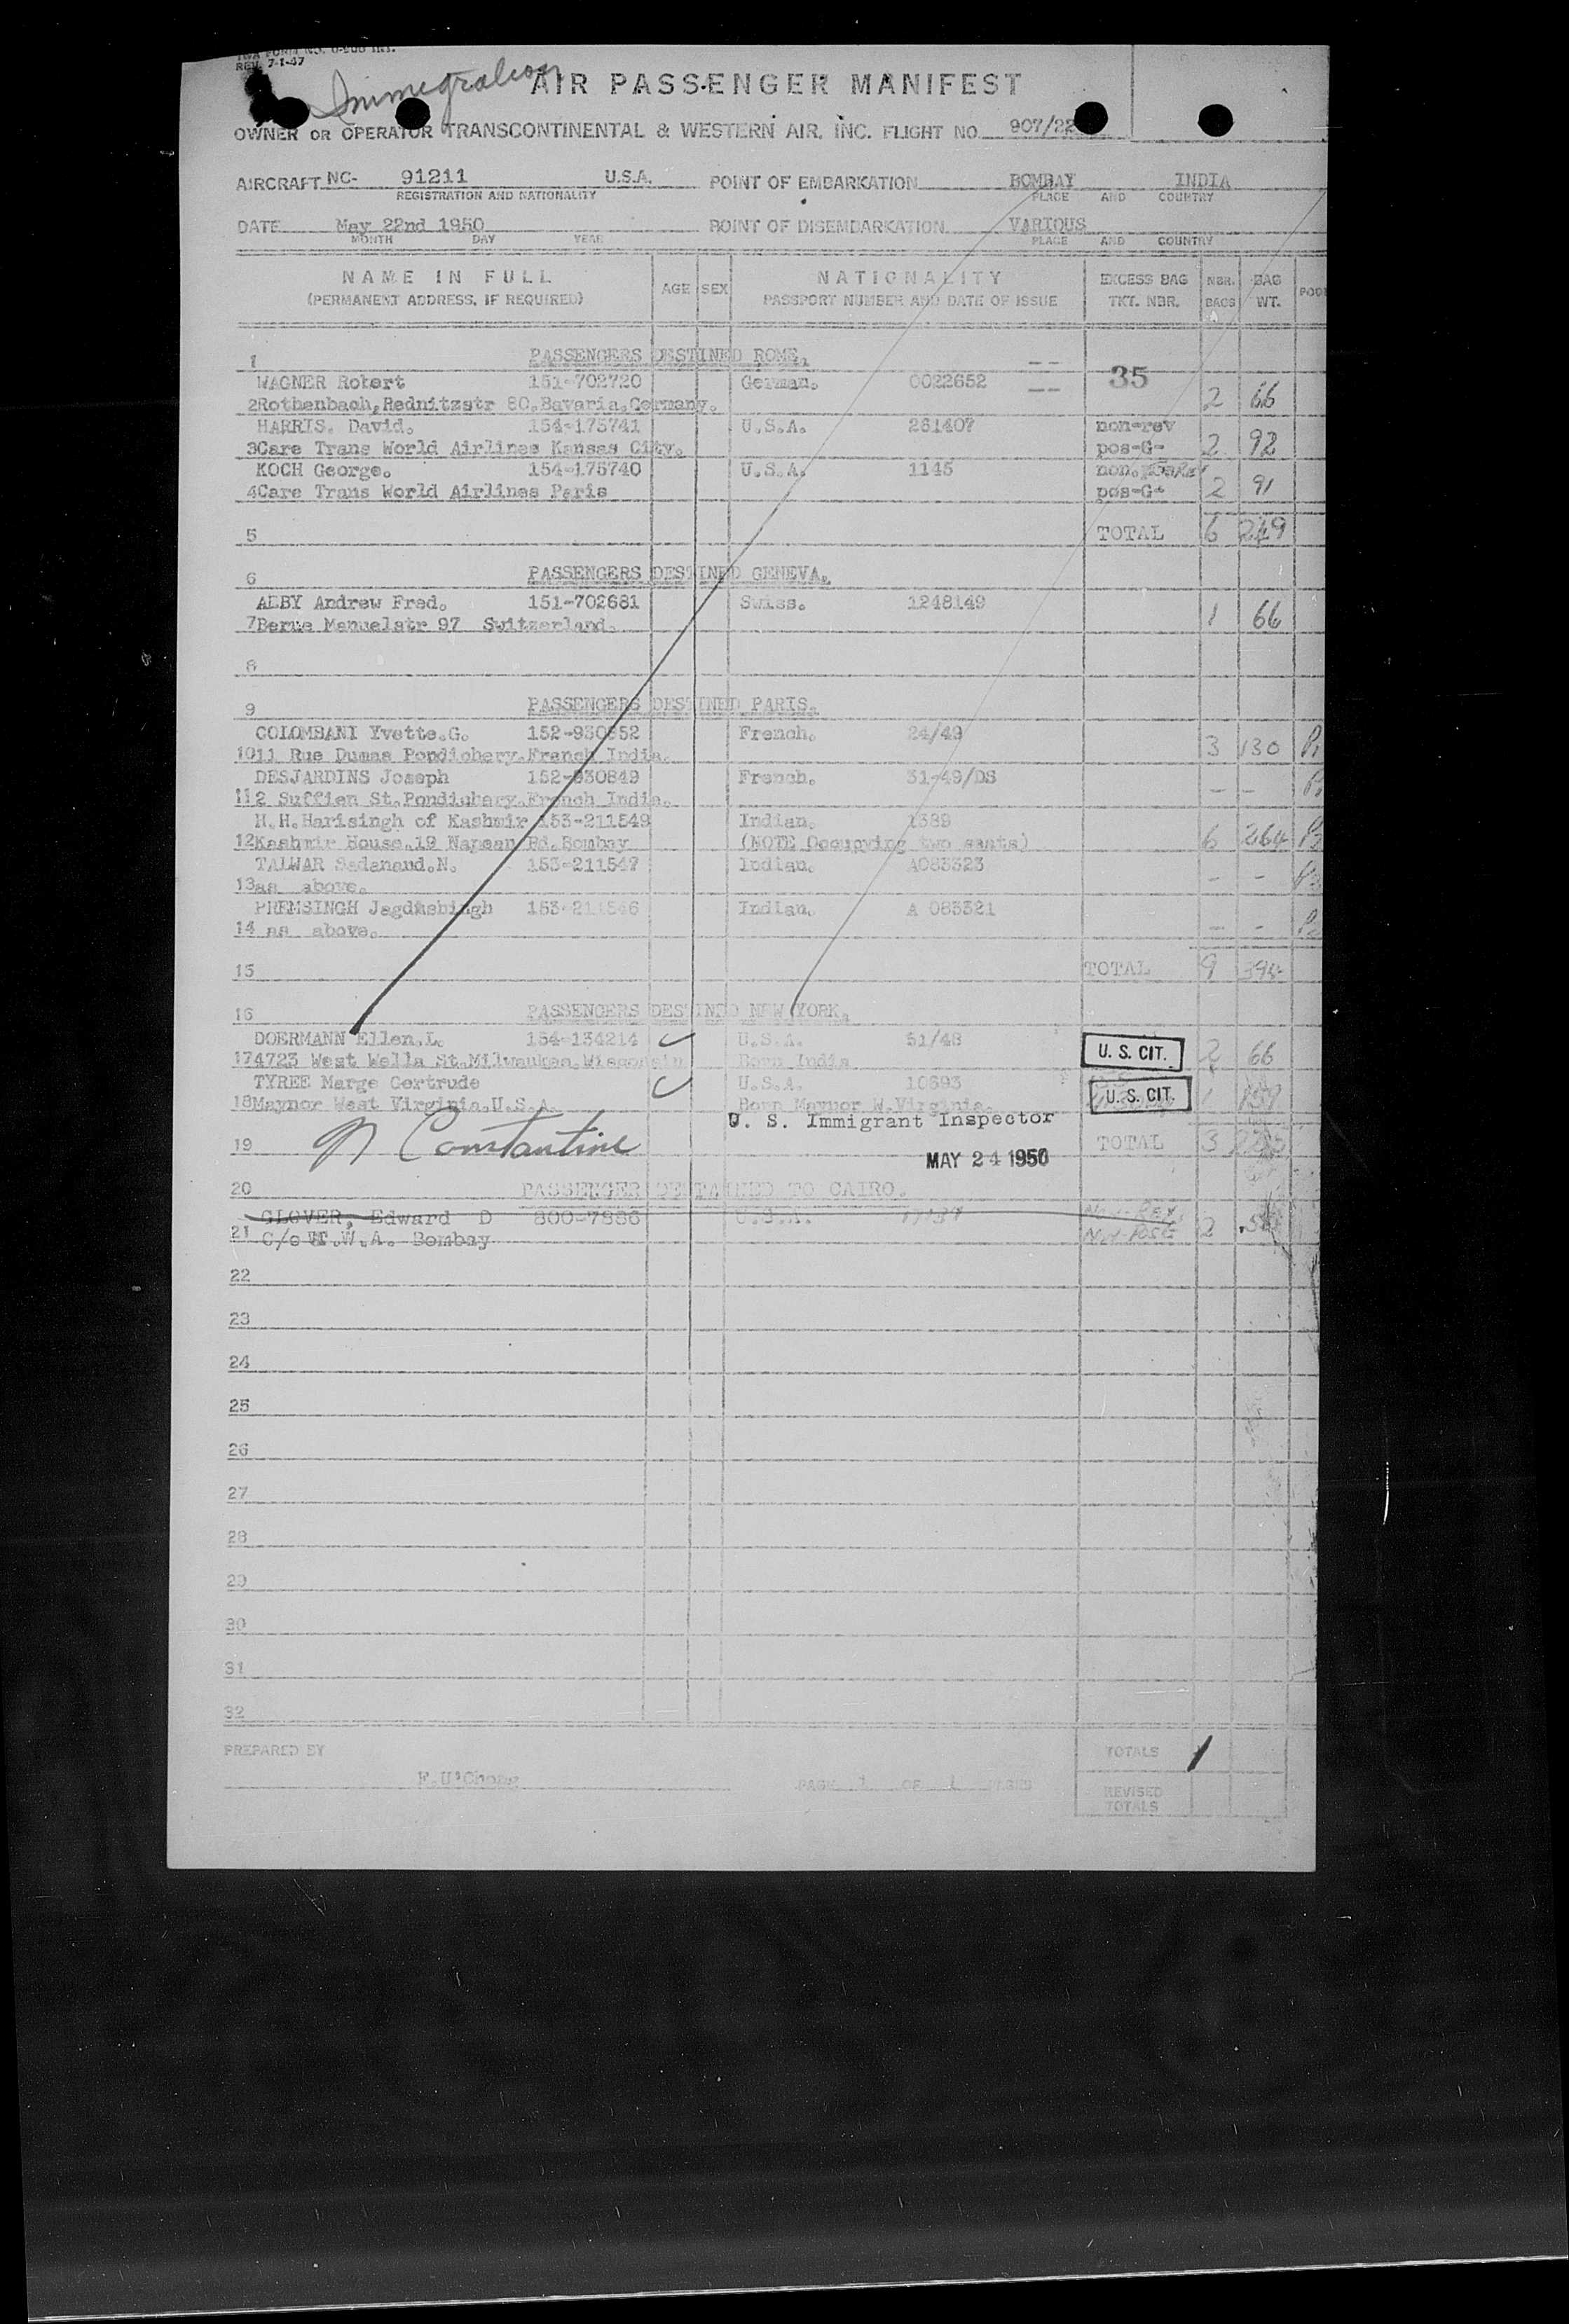 REV. 7-1-47
Immigration
AIR PASSENGER MANIFEST
OWNER OR OPERATOR TRANSCONTINENTAL & WESTERN AIR, INC. FLIGHT NO. 907/22
AIRCRAFT NC- 91211 U.S.A. POINT OF EMBARKATION BOMBAY INDIA
REGISTRATION AND NATIONALITY PLACE AND COUNTRY
DATE May 22nd 1950 POINT OF DISEMBARKATION VARIOUS
MONTH DAY YEAR PLACE AND COUNTRY
NAME IN FULL AGE SEX NATIONALITY EXCESS BAG NBR. BAG
(PERMANENT ADDRESS, IF REQUIRED) PASSPORT NUMBER AND DATE OF ISSUE TKT. NBR. BAGS WT.
1 PASSENGERS DESTINED ROME.
WAGNER Robert 151-702720 German. 0022652 35
2 Rothenbach, Rednitzstr 80, Bavaria, Germany. 2 66
HARRIS. David. 154-175741 U.S.A. 261407 non-rev
3 Care Trans World Airlines Kansas City. pos-G- 2 92
KOCH George. 154-175740 U.S.A. 1145 non.
4 Care Trans World Airlines Paris pos-G- 2 91
5 TOTAL 6 249
6 PASSENGERS DESTINED GENEVA.
AEBY Andrew Fred. 151-702681 Swiss. 1248149
7 Berne Manuelstr 97 Switzerland. 1 66
8
9 PASSENGERS DESTINED PARIS.
COLOMBANI Yvette.G. 152-930852 French. 24/49
10 11 Rue Dumas Pondichery.French India. 3 130
DESJARDINS Joseph 152-930849 French. 31-49/DS
11 2 Suffien St.Pondichery.French India. - -
H.H.Harisingh of Kashmir 153-211549 Indian. 1389
12 Kashmir House.19 Napean Rd.Bombay (NOTE Occupying two seats) 6 264
TALWAR Sadanand.N. 153-211547 Indian. A083323
13 as above. - -
PREMSINGH Jagdishsingh 153-211546 Indian. A 083321
14 as above. - -
15 TOTAL 9 394
16 PASSENGERS DESTINED NEW YORK.
DOERMANN Ellen.L. 154-134214 U.S.A. 51/48
17 4723 West Wells St.Milwaukee.Wisconsin Born India U. S. CIT. 2 66
TYREE Marge Gertrude U.S.A. 10693
18 Maynor West Virginia.U.S.A. Born Maynor W.Virginia. U. S. CIT. 1
U. S. Immigrant Inspector
19 N Constantine TOTAL 3
MAY 24 1950
20 PASSENGER DESTAINED TO CAIRO.
GLOVER, Edward D 800-7886 U.S.A. Non-Rev.
21 C/o T.W.A. Bombay Non-Pose 2
22
23
24
25
26
27
28
29
30
31
32
PREPARED BY TOTALS 1
PAGE 1 OF 1 PAGES
REVISED
TOTALS